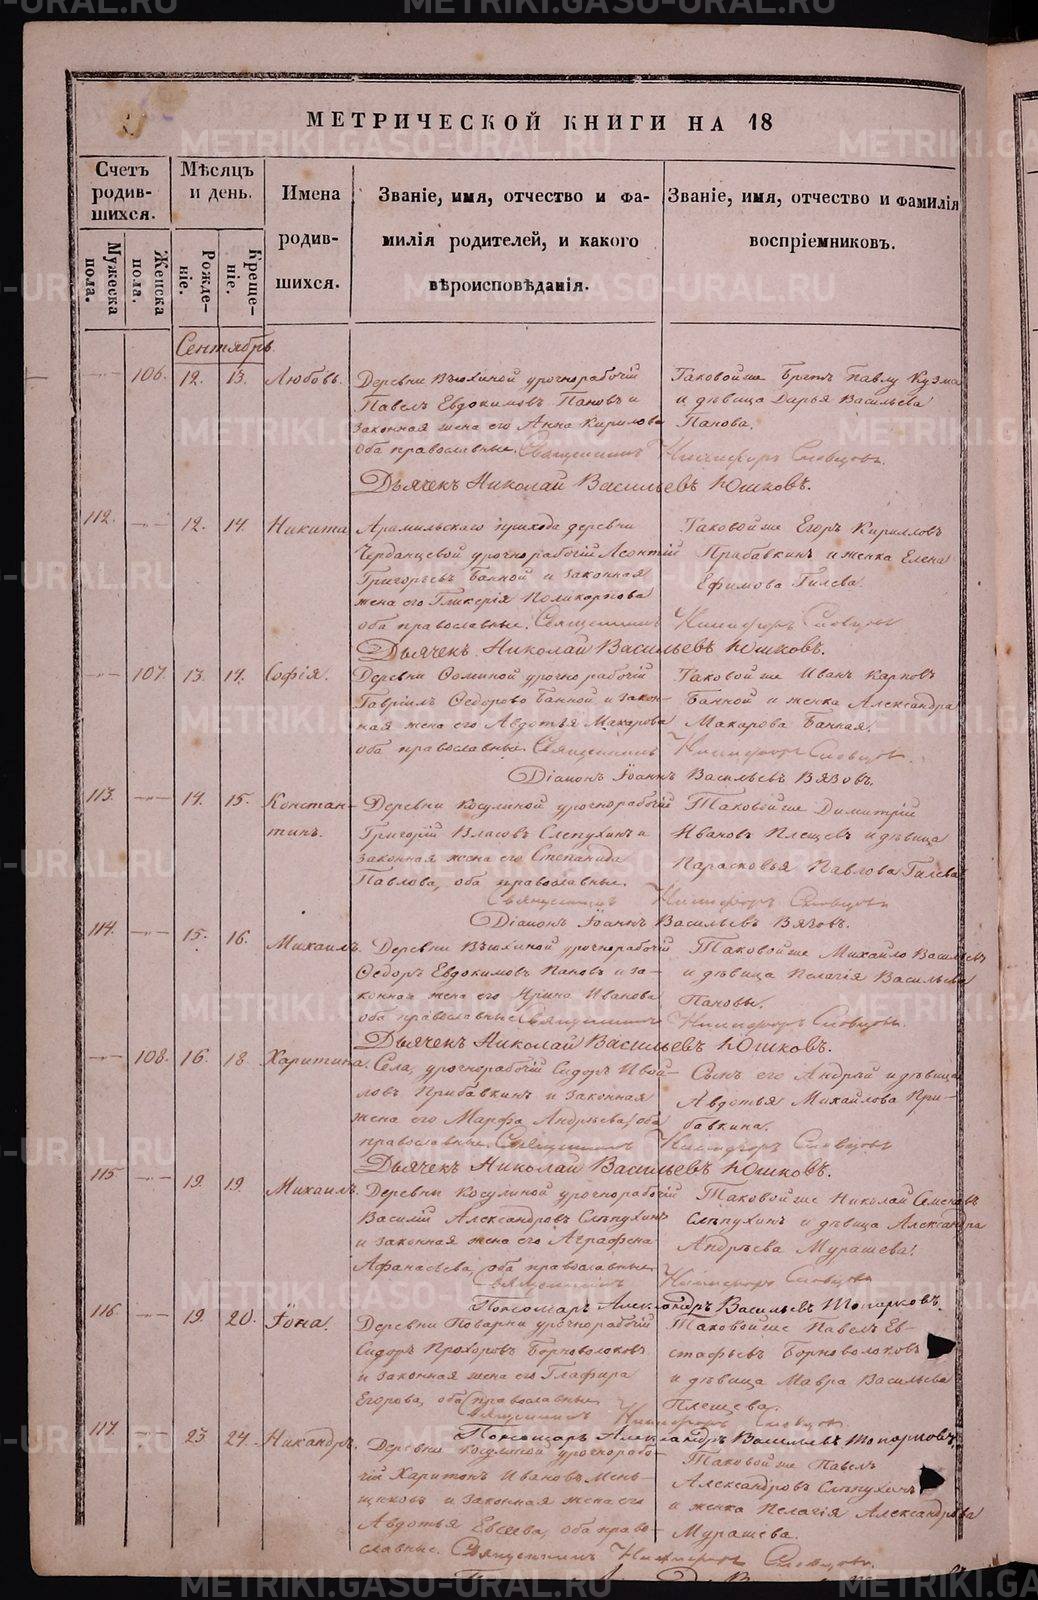 МЕТРИЧЕСКОЙ КНИГИ НА 18
Счетъ родив-шихся.
Мужеска пола.
Женска пола.
Мѣсяцъ и день.
Рожде-ніе.
Креще-ніе.
Имена родив-шихся.
Званіе, имя, отчество и фа-
милія родителей, и какого
вѣроисповѣданія.
Званіе, имя, отчество и фамилія
воспріемниковъ.
Сентябрь.
106. 12. 13. Любовь.
Деревни Вьюхиной урочнорабочій
Павелъ Евдокимовъ Пановъ и
законная жена его Анна Кирилова
оба православные. Священникъ Никифоръ Словцовъ.
Таковойже Павлу Кузма
и дѣвица Дарья Васильева
Панова.
Дьячекъ Николай Васильевъ Юшковъ.
112. 12. 14. Никита
Арамильскаго прихода деревни
Черданцевой урочнорабочій Леонтій
Григорьевъ Банной и законная
жена его Гликерія Поликарпова
оба православные. Священникъ Никифоръ Словцовъ
Таковойже Егоръ Кирилловъ
Прибавкинъ и женка Елена
Ефимова Гилева.
Дьячекъ Николай Васильевъ Юшковъ.
107. 13. 14. Софія.
Деревни Фоминой урочнорабочій
Гавріилъ Ѳедоровъ Банной и закон-
ная жена его Авдотья Макарова
оба православные. Священникъ Никифоръ Словцовъ.
Таковойже Иванъ Карповъ
Банной и женка Александра
Макарова Банная.
Діаконъ Іоаннъ Васильевъ Вязовъ.
113. 14. 15. Констан-
тинъ.
Деревни Косулиной урочнорабочій
Григорій Власовъ Слепухинъ и
законная жена его Степанида
Павлова, оба православные.
Таковойже Димитрій
Ивановъ Плещевъ и дѣвица
Парасковья Павлова Гилева
Священникъ Никифоръ Словцовъ
Діаконъ Іоаннъ Васильевъ Вязовъ.
114. 15. 16. Михаилъ.
Деревни Вьюхиной урочнорабочій
Ѳедоръ Евдокимовъ Пановъ и за-
конная жена его Ирина Иванова
оба православные Священникъ Никифоръ Словцовъ.
Таковойже Михайло Васильевъ
и дѣвица Пелагія Васильева
Пановы.
Дьячекъ Николай Васильевъ Юшковъ.
108. 16. 18. Харитина.
Села, урочнорабочій Сидоръ
Прибавкинъ и законная
жена его Марфа Андрѣева, оба
православные. Священникъ Никифоръ Словцовъ
Сынъ его Андрей и дѣвица
Авдотья Михайлова При-
бавкина.
Дьячекъ Николай Васильевъ Юшковъ.
115 19. 19. Михаилъ.
Деревни Косулиной урочнорабочій
Василій Александровъ Слѣпухинъ
и законная жена его Аграфена
Афанасьева, оба православные
Таковойже Николай Семеновъ
Слѣпухинъ и дѣвица Александра
Андрѣева Мурашева.
Священникъ Никифоръ Словцовъ
Пономарь Александръ Васильевъ Топорковъ.
116. 19. 20. Іона.
Деревни Поварни урочнорабочій
Сидоръ Прохоровъ Борноволоковъ
и законная жена его Глафира
Егорова, оба православные
Таковойже Павелъ Ев-
стафьевъ Борноволоковъ
и дѣвица Мавра Васильева
Плещева.
Священникъ Никифоръ Словцовъ.
Пономарь Александръ Васильевъ Топорковъ.
117. 23. 24. Никандръ.
Деревни Косулиной урочнорабо-
чій Харитонъ Ивановъ Мень-
щиковъ и законная жена его
Авдотья Евсеева, оба право-
славные. Священникъ Никифоръ Словцовъ.
Таковойже Павелъ
Александровъ Слѣпухинъ
и женка Пелагія Александрова
Мурашева.
METRIKI.GASO-URAL.RU